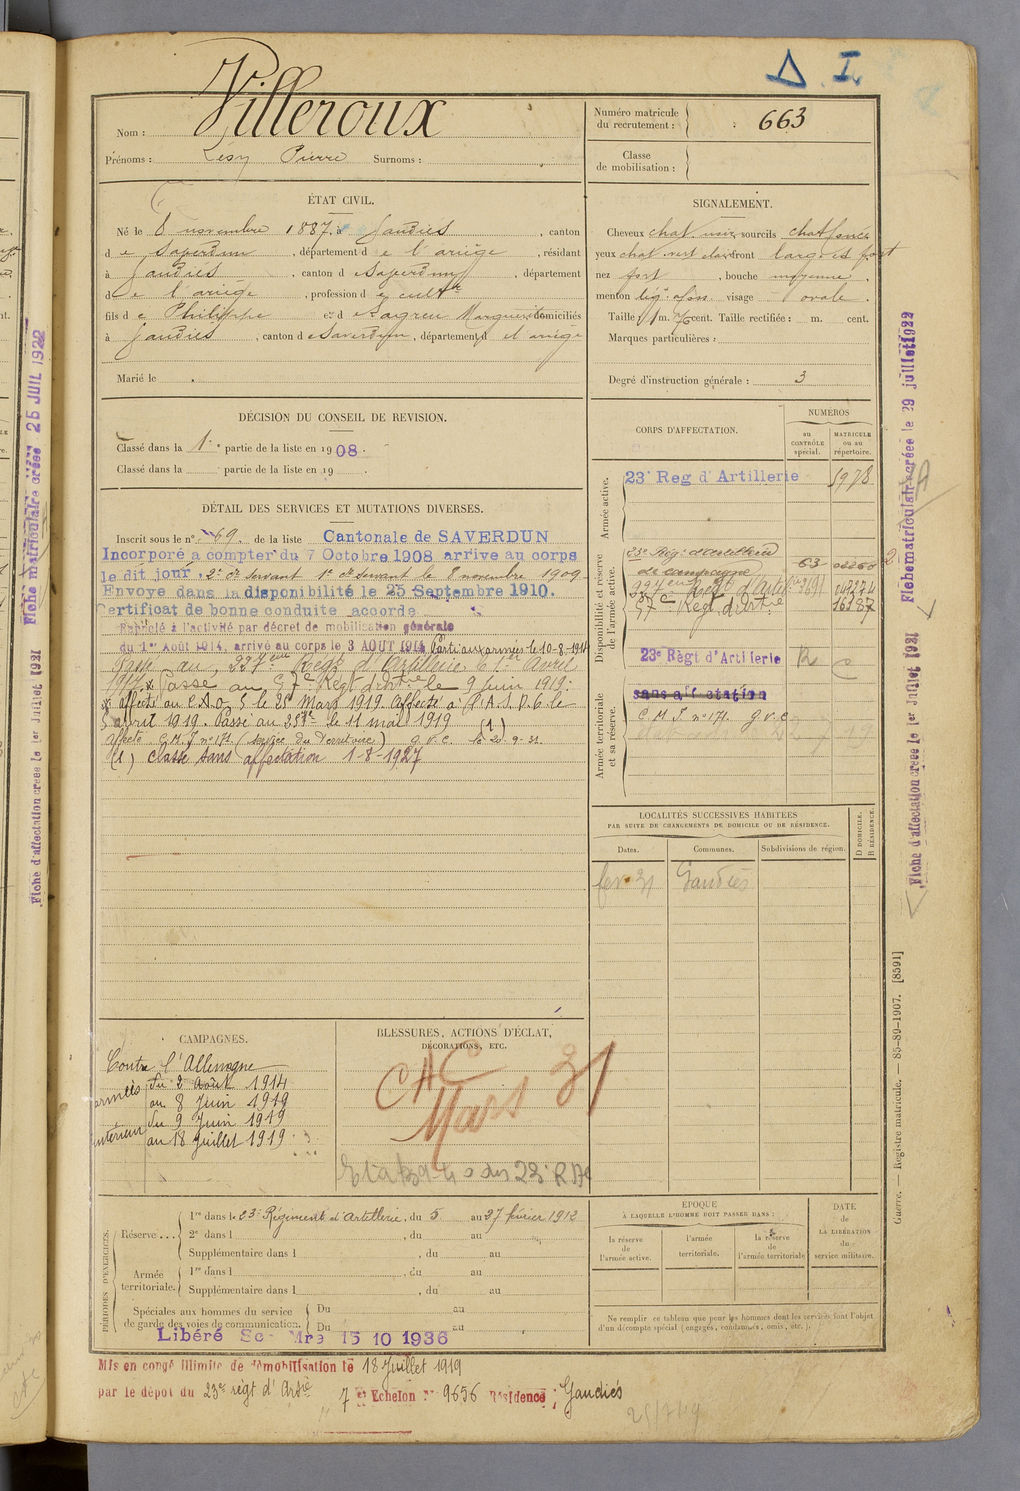 Δ I
Nom : Villeroux
Prénoms : Pierre Surnoms :
Numéro matricule du recrutement : 663
Classe de mobilisation :
ÉTAT CIVIL.
Né le 8 novembre 1887, à Gaudiès, canton
de Saverdun, département de l'ariège, résidant
à Gaudiès, canton de Saverdun, département
de l'ariège, profession de cultr
fils de Philippe et de Marguerite domiciliés
à Gaudiès, canton de Saverdun, département de l'ariège
Marié le .
SIGNALEMENT.
Cheveux chat. noir, sourcils chat foncé
yeux chat. vert clair front large et
nez fort, bouche moyenne,
menton visage ovale.
Taille : 1 m. 76 cent. Taille rectifiée : m. cent.
Marques particulières :
Degré d'instruction générale : 3
DÉCISION DU CONSEIL DE REVISION.
Classé dans la 1e partie de la liste en 1908.
Classé dans la partie de la liste en 19 .
DÉTAIL DES SERVICES ET MUTATIONS DIVERSES.
Inscrit sous le n° 69. de la liste Cantonale de SAVERDUN
Incorporé a compter du 7 Octobre 1908 arrive au corps
le dit jour, 2e cr servant 1e cr servant le 8 novembre 1909
Envoye dans la disponibilité le 25 Septembre 1910.
Certificat de bonne conduite accorde
Rappelé à l'activité par décret de mobilisation générale
du 1er Août 1914, arrivé au corps le 3 AOUT 1914 Parti aux armées le 10-8-1914
Passé au 227eme Regt d'Artillerie le 1er Avril
1917 x Passé au 57e Regt d'artie le 9 Juin 1919.
x affecté au C.A.O. 5 le 25 Mars 1919. Affecté à P.A.S.D.6 le
5 avril 1919. Passé au 23e le 11 mai 1919 (1)
Affecté C.M.I n° 171. (service du Territoire) G.V.C. le 20-9-31.
(1) Classé sans affectation 1-8-1927
CORPS D'AFFECTATION.
NUMÉROS
au CONTRÔLE spécial.
MATRICULE ou au répertoire.
Armée active.
23e Reg d'Artillerie 5978
Disponibilité et réserve de l'armée active.
23e Régt d'artillerie de campagne 63 02260
57e Regt d'artie 16387
23e Règt d'Artillerie R
Armée territoriale et sa réserve.
sans affectation
C.M.I n° 171. G.V.C
LOCALITÉS SUCCESSIVES HABITÉES
PAR SUITE DE CHANGEMENTS DE DOMICILE OU DE RÉSIDENCE.
Dates. Communes. Subdivisions de région. D DOMICILE. R RÉSIDENCE.
fev. 31 Gaudiès
CAMPAGNES.
Contre l'Allemagne
armées du 3 Août 1914
au 8 Juin 1919
intérieur du 9 Juin 1919
au 18 Juillet 1919
BLESSURES, ACTIONS D'ÉCLAT,
DÉCORATIONS, ETC.
CAC
Mars 31
PÉRIODES D'EXERCICES.
Réserve.... 1re dans le 23e Régiment d'Artillerie, du 5 au 27 février 1912
2e dans l , du au
Supplémentaire dans l , du au
Armée territoriale. 1re dans l , du au
Supplémentaire dans l , du au
Spéciales aux hommes du service de garde des voies de communication. Du au
Du au
Libéré Ser Mre 15 10 1936
ÉPOQUE
À LAQUELLE L'HOMME DOIT PASSER DANS :
la réserve de l'armée active.
l'armée territoriale.
la réserve de l'armée territoriale
DATE de LA LIBÉRATION du service militaire.
Ne remplir ce tableau que pour les hommes dont les services font l'objet
d'un décompte spécial (engagés, condamnés, omis, etc.).
Mis en congé illimité de démobilisation le 18 Juillet 1919
par le dépot du 23e régt d'Artie 7e Echelon N° 9656 Résidence : Gaudiès
Fiche matriculaire créée le 29 juillet 1922
Fiche d'affectation créée le 1er Juillet 1921
Guerre. — Registre matricule. — 85-89-1907. [8591]
Fiche matriculaire créée 25 JUIL 1922
Fiche d'affectation créée le 1er Juillet 1921